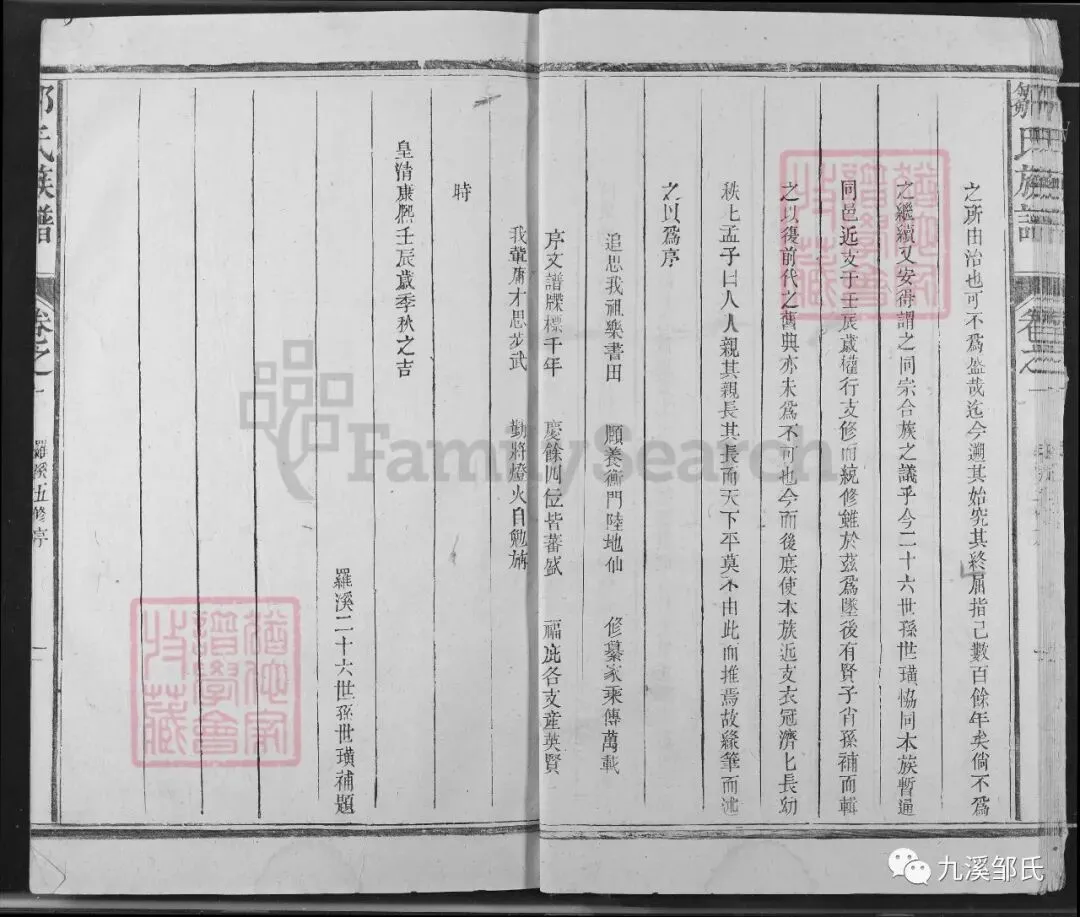 鄒氏族譜
卷之
之所由治也可不爲盛哉迄今溯其始究其終屈指已數百餘年矣倘不爲
之繼續又安得謂之同宗合族之議乎今二十六世孫世璜恊同本族暫通
同邑近支于壬辰歲權行支修而統修雖於茲爲墜後有賢子肖孫補而輯
之以復前代之舊典亦未爲不可也今而後庶使本族近支衣冠濟匕長幼
秩匕孟子曰人人親其親長其長而天下平莫不由此而推焉故緣筆而述
之以爲序
追思我祖樂書田 願養衡門陸地仙 修纂家乘傳萬載
序文譜牒標千年 慶餘四位皆蕃盛 福庇各支産英賢
我輩庸才思步武 勤將燈火自勉旃
時
皇清康熙壬辰歲季秋之吉
羅溪二十六世孫世璜補題
鄒氏族譜
卷之一
羅溪五修序
一
譜學會
收藏
譜學會
收藏
FamilySearch
九溪邹氏